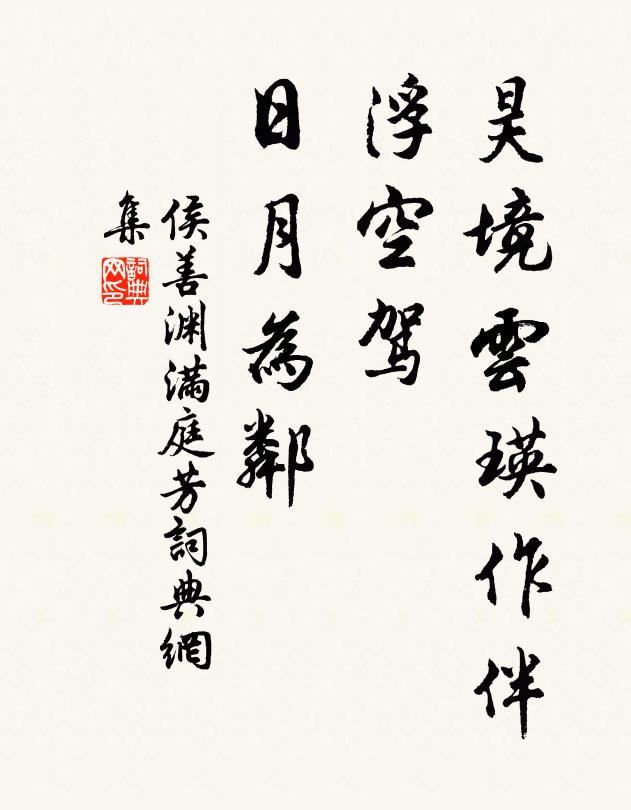 昊境雲瑛作伴
浮空駕
日月為鄰
侯善淵滿庭芳詞典網
集
詞典
网印